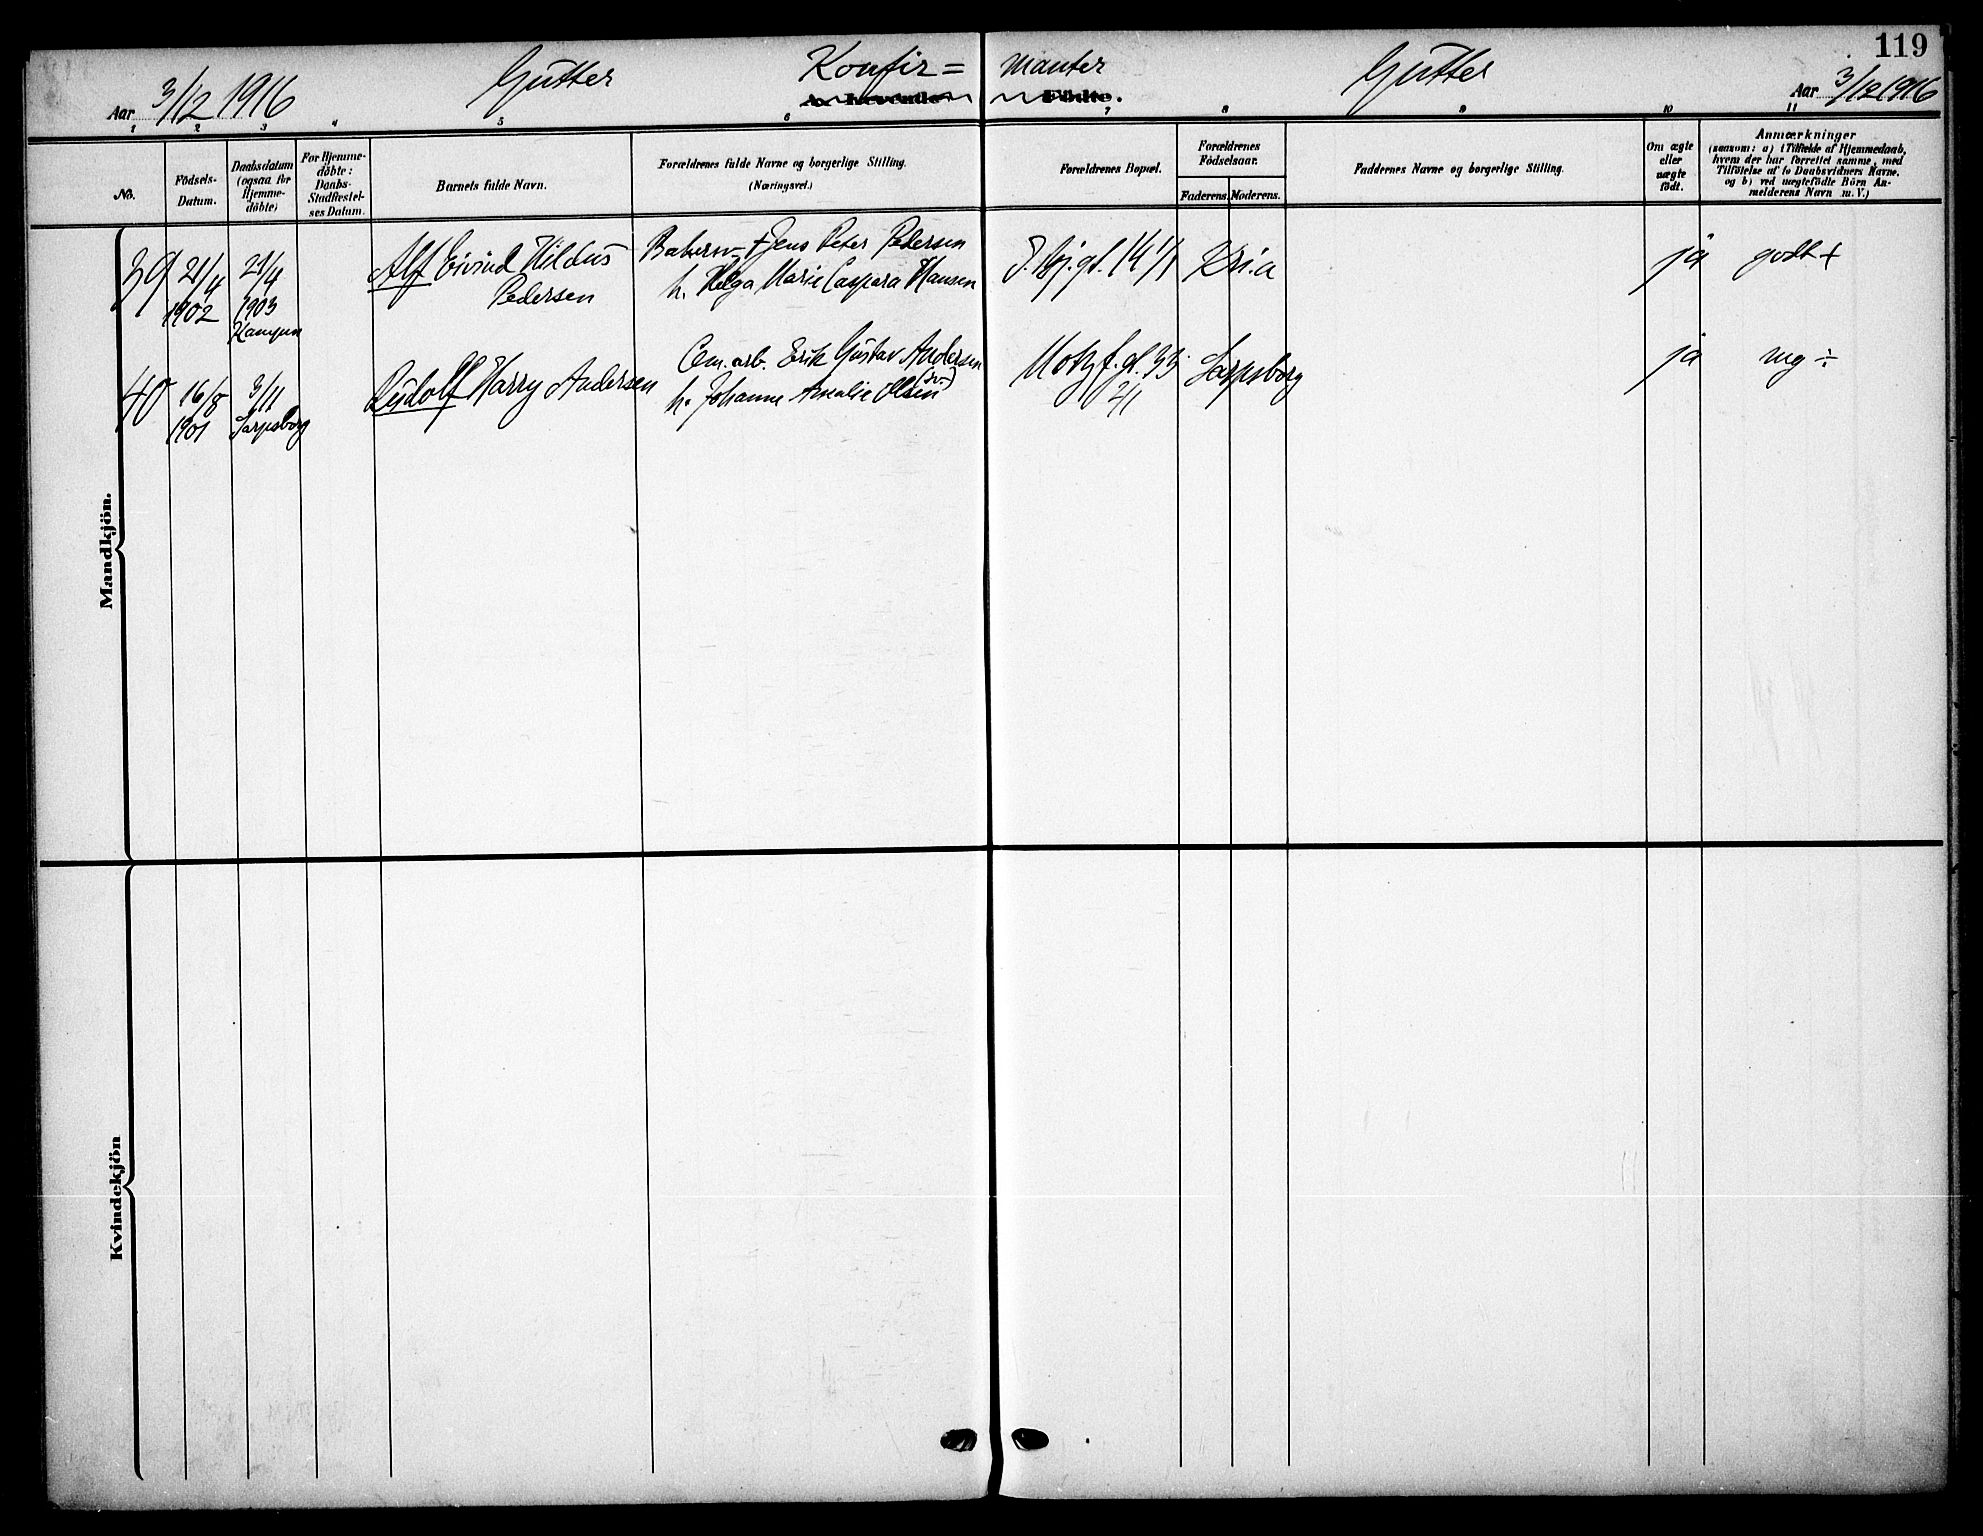 119
Aar 3/12 1916 Gutter Konfir=manter Gutter Aar 3/12 1916
A. Levende Födte.
1 2 3 4 5 6 7 8 9 10 11
No.
Födsels-
Datum.
Daabsdatum
(ogsaa for
Hjemme-
döbte)
For Hjemme-
döbte:
Daabs-
Stadfæstel-
ses Datum.
Barnets fulde Navn.
Forældrenes fulde Navne og borgerlige Stilling.
(Næringsvei.)
Forældrenes Bopæl.
Forældrenes
Födselsaar.
Faderens. Moderens.
Faddernes Navne og borgerlige Stilling.
Om ægte
eller
uægte
födt.
Anmærkninger
(saasom: a) i Tilfælde af Hjemmedaab,
hvem der har forrettet samme, med
Tilföielse af to Daabsvidners Navne,
og b) ved uægtefödte Börn An-
melderens Navn m. V.)
Mandkjön.
39
21/4
1902
21/4
1903
Kampen
Alf Eivind Hildus
Pedersen
Jens Peter Pedersen
h. Helga Marie Caspara Hansen
gt. 14 1/1
Kri.a
ja
godt +
40
16/8
1901
3/11
Sarpsborg
Rudolf Harry Andersen
Cem. arb. Erik Gustav Andersen
(sv.)
h. Johanne Amalie Olsen
Motzf. gt. 33
2/1
Sarpsborg
ja
mg ÷
Kvindekjön